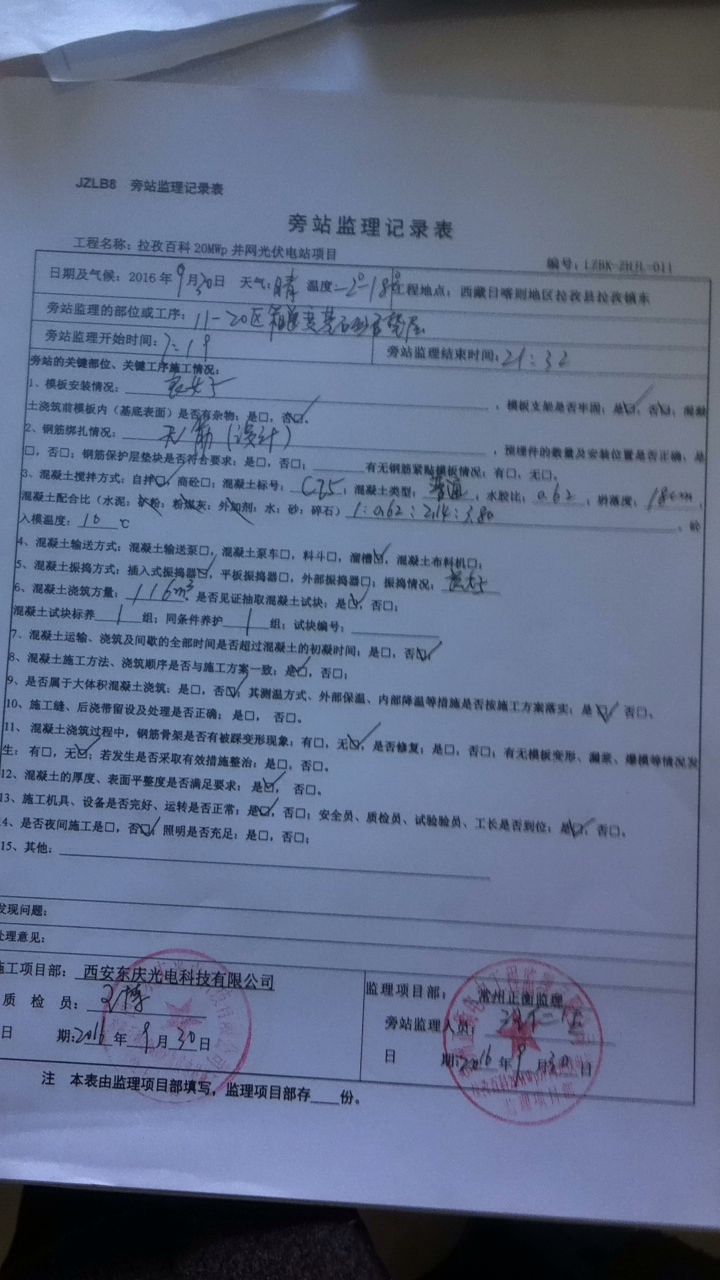 JZLB8 旁站监理记录表
旁站监理记录表
工程名称：拉孜百科20MWp并网光伏电站项目
编号：LZBK-ZHJL-011
日期及气候：2016年9月30日 天气：晴 温度：-2°-18° 工程地点：西藏日喀则地区拉孜县拉孜镇东
旁站监理的部位或工序：11-20区箱逆变基础垫层
旁站监理开始时间：7:19 旁站监理结束时间：21:32
旁站的关键部位、关键工序施工情况：
1、模板安装情况：良好，模板支架是否牢固：是☑，否□；混凝
土浇筑前模板内（基底表面）是否有杂物：是□，否☑。
2、钢筋绑扎情况：无筋（设计），预埋件的数量及安装位置是否正确，是
□，否□；钢筋保护层垫块是否符合要求：是□，否□；有无钢筋紧贴模板情况：有□，无□。
3、混凝土搅拌方式：自拌☑，商砼□；混凝土标号：C25；混凝土类型：普通，水胶比：0.62，坍落度：180mm，
混凝土配合比（水泥：矿粉：粉煤灰：外加剂：水：砂：碎石）1:0.62:2.14:3.80，砼
入模温度：10℃
4、混凝土输送方式：混凝土输送泵□，混凝土泵车□，料斗□，溜槽☑，混凝土布料机□；
5、混凝土振捣方式：插入式振捣器☑，平板振捣器□，外部振捣器□；振捣情况：良好
6、混凝土浇筑方量：116m³ 是否见证抽取混凝土试块：是☑，否□；
混凝土试块标养 1 组；同条件养护 1 组；试块编号：
7、混凝土运输、浇筑及间歇的全部时间是否超过混凝土的初凝时间：是□，否☑；
8、混凝土施工方法、浇筑顺序是否与施工方案一致：是☑，否□；
9、是否属于大体积混凝土浇筑：是□，否☑；其测温方式、外部保温、内部降温等措施是否按施工方案落实：是☑ 否□。
10、施工缝、后浇带留设及处理是否正确：是□，否□。
11、混凝土浇筑过程中，钢筋骨架是否有被踩变形现象：有□，无☑，是否修复：是□，否□；有无模板变形、漏浆、爆模等情况发
生：有□，无☑；若发生是否采取有效措施整治：是□，否□。
12、混凝土的厚度、表面平整度是否满足要求：是☑，否□。
13、施工机具、设备是否完好、运转是否正常：是☑，否□；安全员、质检员、试验验员、工长是否到位：是☑，否□。
14、是否夜间施工是□，否☑ 照明是否充足：是□，否□；
15、其他：
发现问题：
处理意见：
施工项目部：西安东庆光电科技有限公司 监理项目部：常州正衡监理
质 检 员： 旁站监理人员：
日 期：2016年9月30日 日 期：2016年9月30日
注 本表由监理项目部填写，监理项目部存 份。